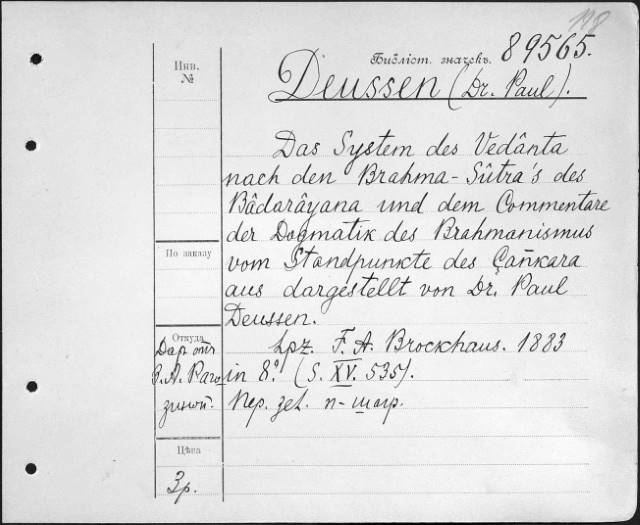 118
Библіот. значекъ. 89565.
Инв.
№
Deussen (Dr. Paul).
Das System des Vedânta
nach den Brahma-Sûtra's des
Bâdarâyana und dem Commentare
der Dogmatik des Brahmanismus
По заказу
vom Standpunkte des Çañkara
aus dargestellt von Dr. Paul
Deussen.
Откуда
Lpz. F. A. Brockhaus. 1883
Даръ отъ
in 8º. (S. XV. 535).
З. А. Раго
зиной.
Пер. зел. п-шагр.
Цѣна
3 р.